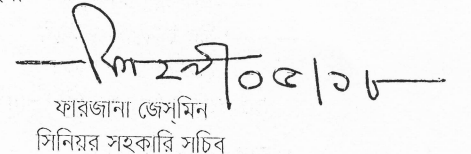 ০৫/১৮
ফারজানা জেস্‌মিন
সিনিয়র সহকারি সচিব